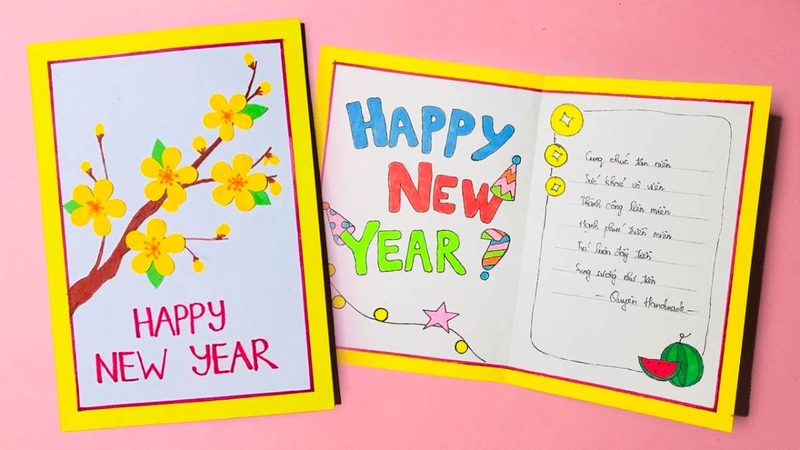 HAPPY
NEW YEAR
HAPPY
NEW
YEAR
Cung chúc tân niên
Sức khoẻ vô biên
Thành công liên miên
Hạnh phúc triền miên
Túi luôn đầy tiền
Sung sướng như tiên
- Quyên Handmade -